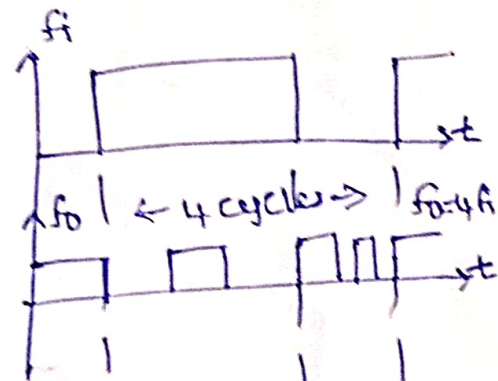 fi
t
fo ← 4 cycles → fo=4fi
t